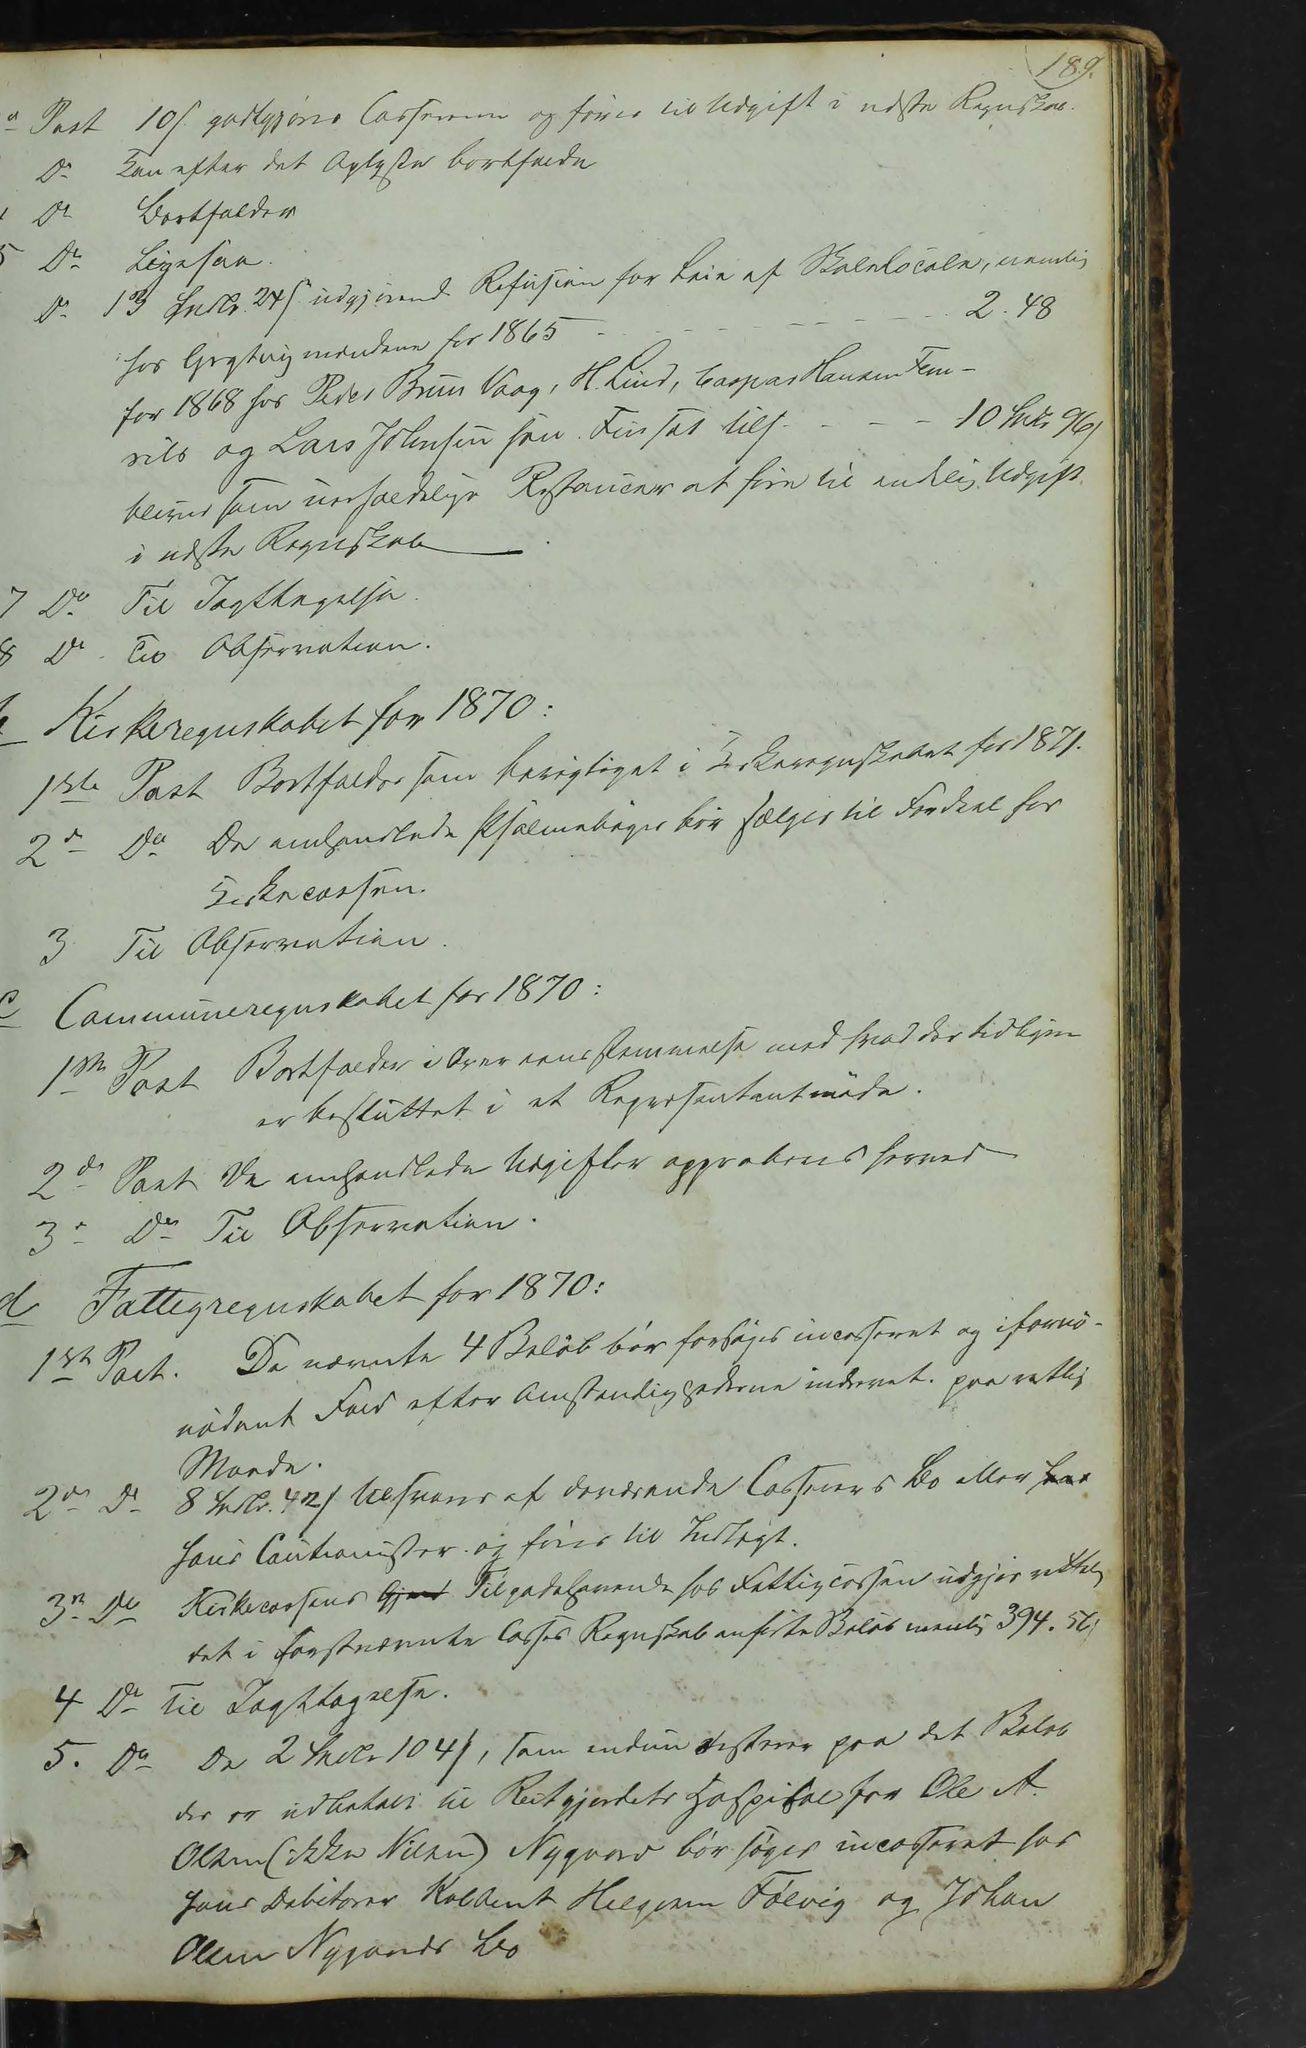 189.
Post 10 s. godtgjøres Cassereren og føres til Udgift i næste Regnskab.
Do kan efter det Oplyste bortfalde
Do Bortfalder
5 Do Ligesaa.
Do 13 Spdlr. 24 s. udgjørende Refusion for Leie af Skolelocale, nemlig
hos mændene for 1865 - - - - 2. 48
for 1868 hos Peder Bruus Vaag, H. Lind, Caspar Hansen Fem-
rils og Lars Johnsen sen. Finset tils. - - - - 10 Spdlr 96 s
bliver som uerholdelige Restancer at føre til endelig Udgift
i næste Regnskab
7 Do Til Iagttagelse.
8 Do Til Observation.
Kirkeregnskabet for 1870:
1ste Post Bortfalder som berigtiget i Kirkeregnskabet for 1871.
2den Do De omhandlede Psalmebøger bør sælges til Fordeel for
Kirkecassen.
3 Til Observation.
c Communeregnskabet for 1870:
1ste Post Bortfalder i Overeensstemmelse med hvad der tidligere
er besluttet i et Repræsentantmøde.
2den Post De omhandlede Udgifter approberes herved
3e Do Til Observation.
d Fattigregnskabet for 1870:
1ste Post. De nævnte 4 Beløb bør forsøges incasseret og i fornø-
dent Fald efter Omstændighederne inddrevet paa retlig
Maade.
2den Do 8 Spdlr. 42 s. tilsvares af daværende Casserers Bo eller
hans Cautionister og føres til Indtægt.
3die Do Kirkecassens Tilgodehavende hos Fattigcassen udgjør rettelig
det i førstnævnte Casses Regnskab anførte Beløb nemlig 394. 56
4 Do Til Iagttagelse.
5. Do De 2 Spdlr 104 s, som endnu resterer paa det Beløb
der er udbetalt til Reitgjerdets Hospital for Ole A.
Olsen (ikke Nilsen) Nygaard bør søges incasseret hos
hans Debitorer Helgesen Tølvig og Johan
Olsen Nygaards Bo